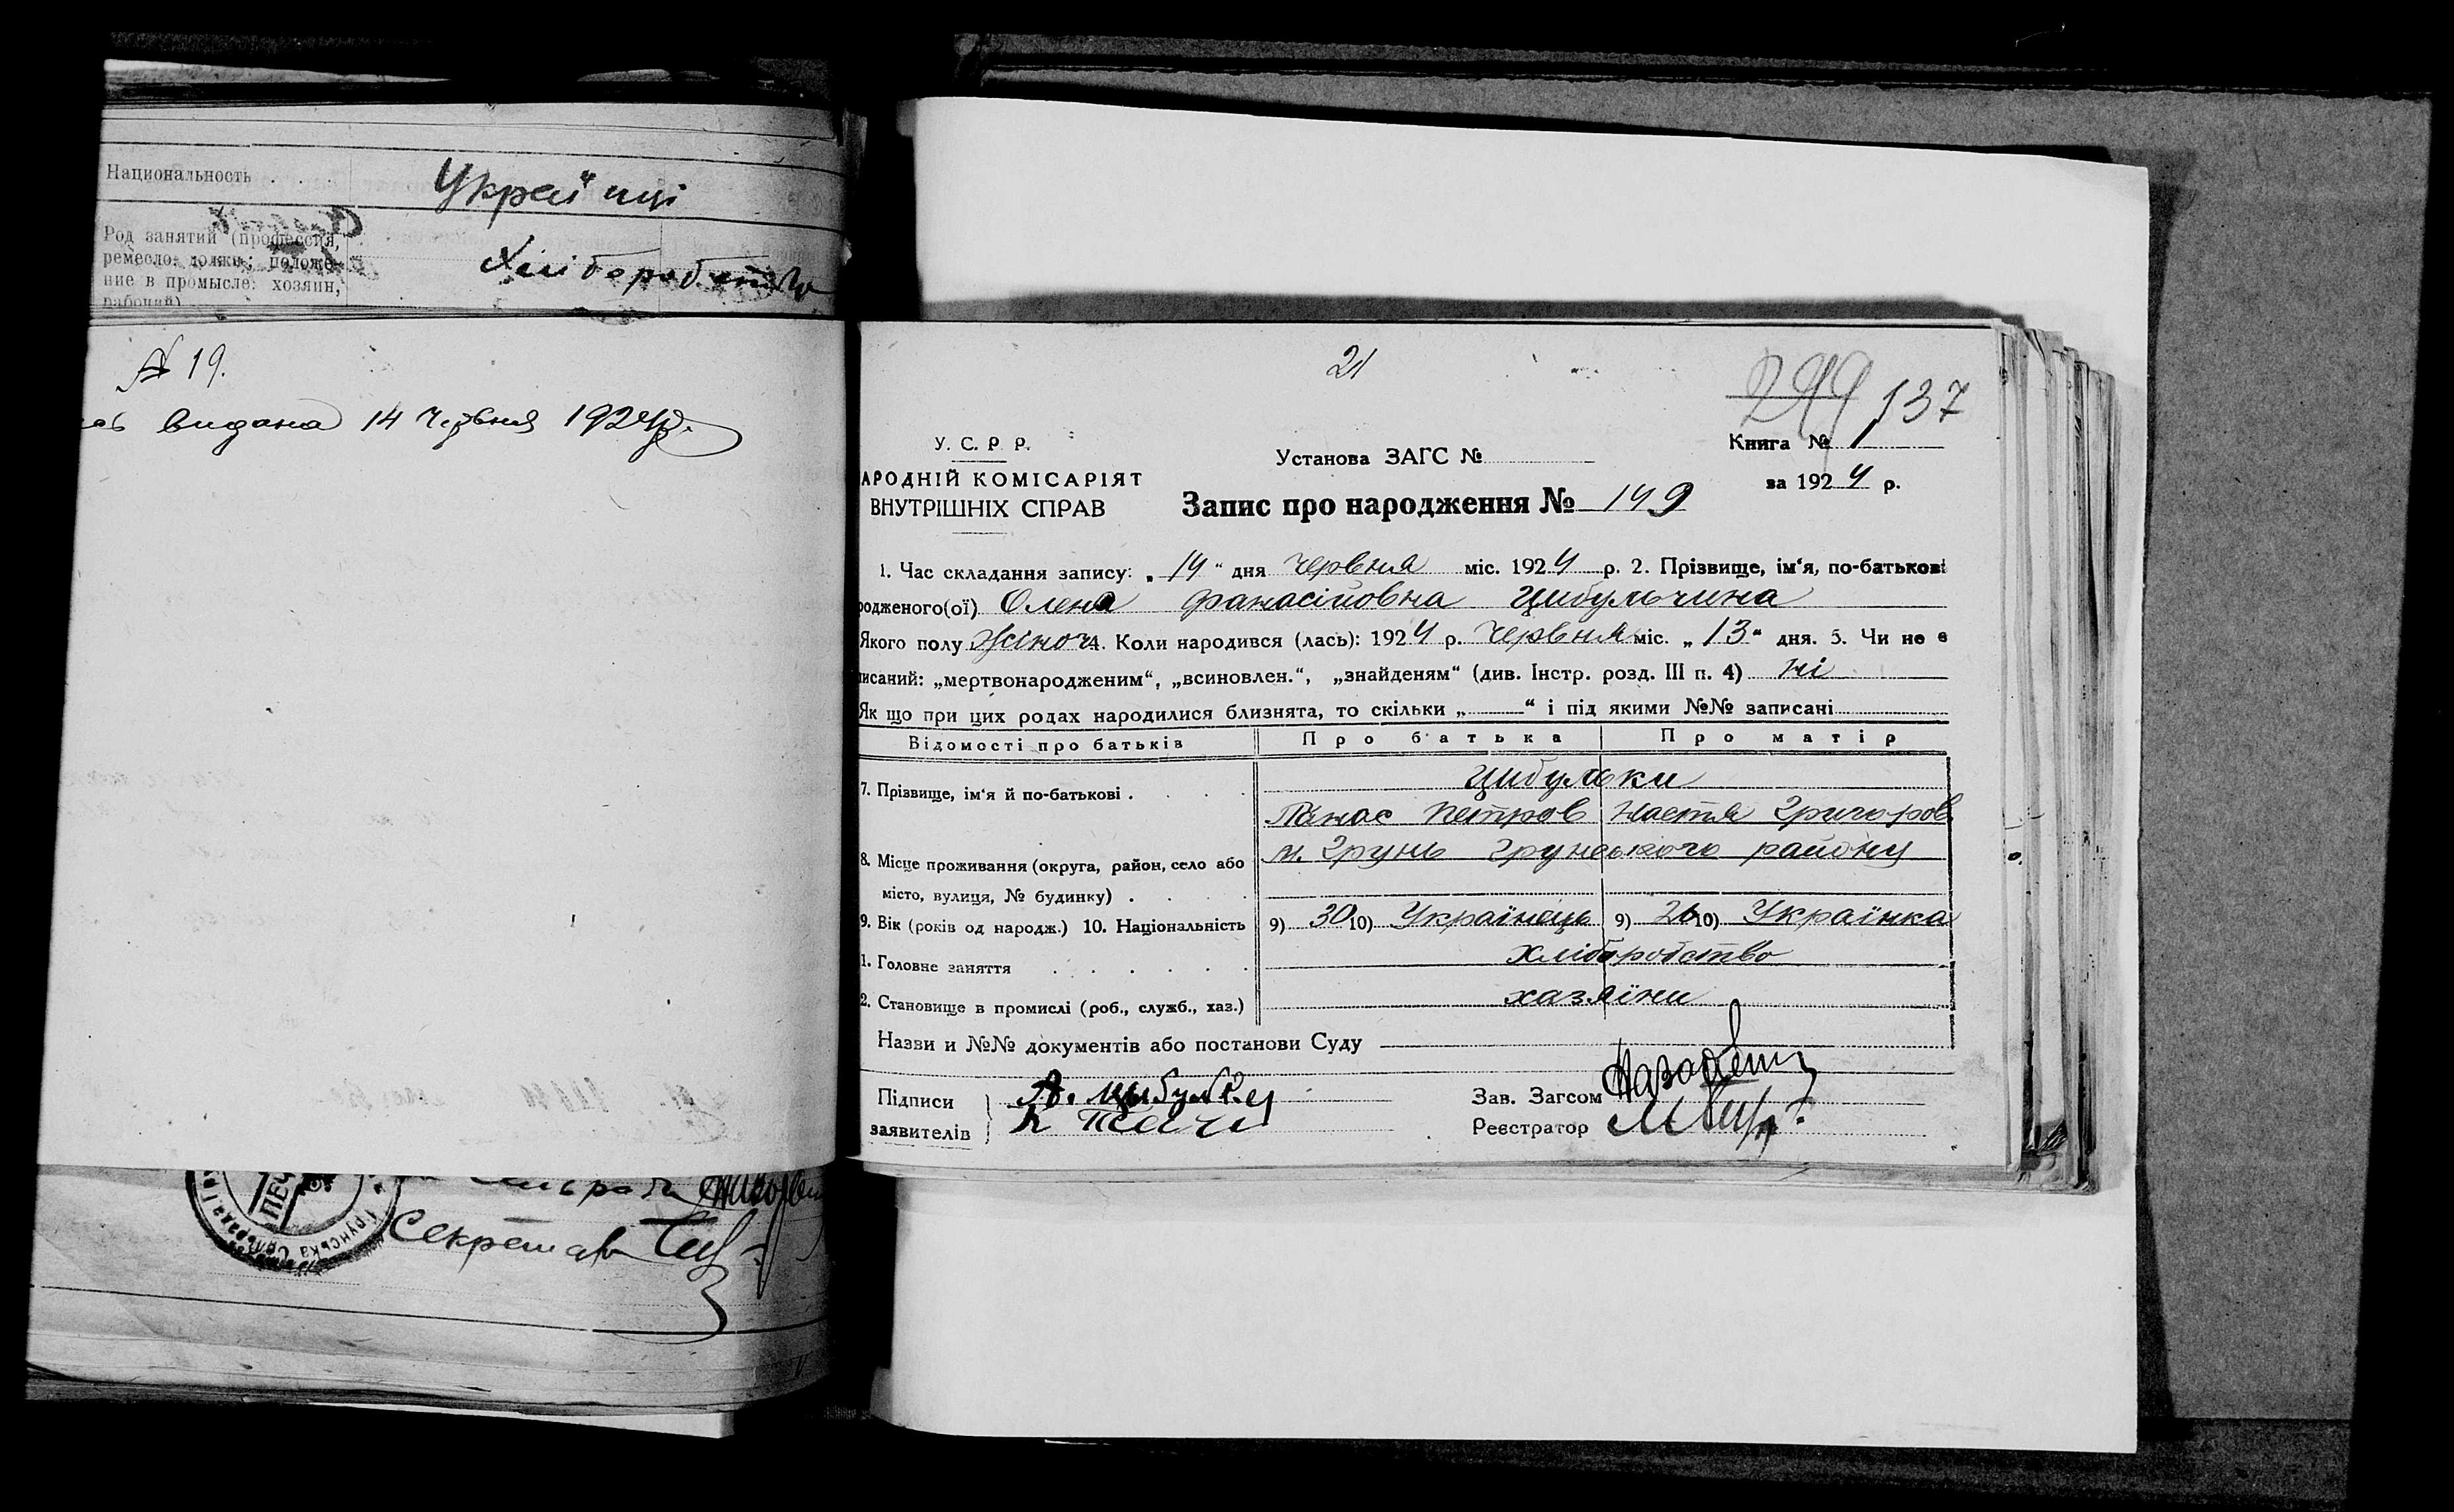 Национальность . . . Украінці
Род занятий (профессия,
ремесло: должн; положе-
ние в промысле: хозяин,
рабочий)
Хліборобство
№ 19.
видана 14 Червня 1924р.
21
299 137
У. С. Р. Р.
АРОДНІЙ КОМІСАРІЯТ
ВНУТРІШНІХ СПРАВ
Установа ЗАГС №
Книга № 1
за 1924 р.
Запис про народження № 149
1. Час складання запису: „14“ дня червня міс. 1924 р. 2. Прізвище, ім‘я, по-батькові
родженого(ої) Олена Фанасійовна Цибульчина
Якого полу Жіноч 4. Коли народився (лась): 1924 р. Червня міс. „13“ дня. 5. Чи не є
писаний: „мертвонародженим“, „всиновлен.“, „знайденям“ (див. Інстр. розд. III п. 4) ні
Як що при цих родах народилися близнята, то скільки „——“ і під якими №№ записані
Відомості про батьків Про батька Про матір
Цибульки
7. Прізвище, ім‘я й по-батькові . . . .
Панас Петров Настя Григоров
м. Грунь Грунського району
8. Місце проживання (округа, район, село або
місто, вулиця, № будинку) . . . .
9. Вік (років од народж.) 10. Національність 9) 30 10) Українець 9) 26 10) Українка
1. Головне заняття . . . . . . Хліборобство
2. Становище в промислі (роб., служб., хаз.) хазяїни
Назви и №№ документів або постанови Суду
Підписи
заявителів
А. Цыбулка
Зав. Загсом
Реєстратор
ПЕЧ
Грунська Сільрада
Секретар